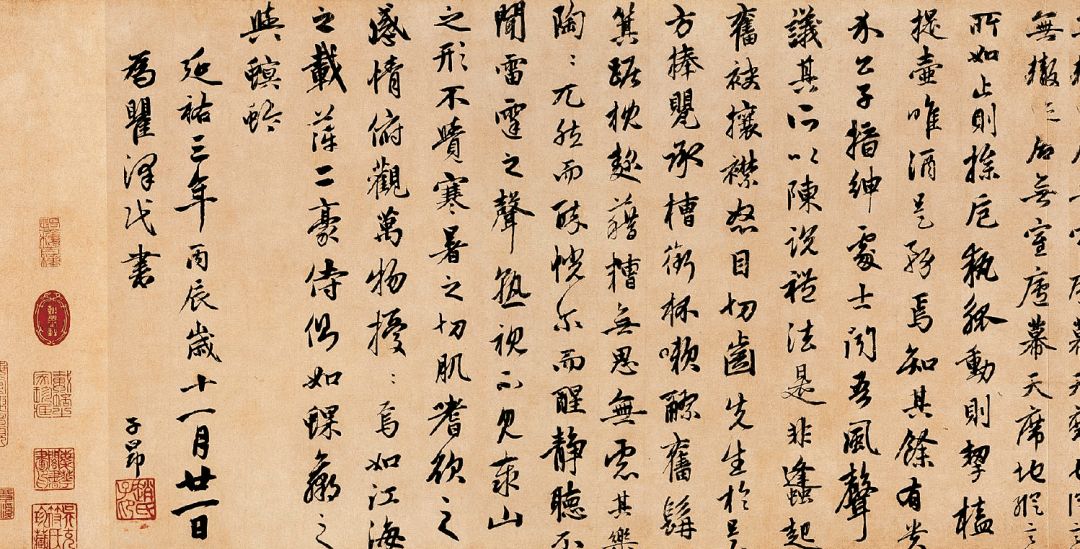 無轍迹居無室廬幕天席地縱意
所如止則操卮執觚動則挈榼
提壺唯酒是務焉知其餘有貴
介公子搢紳處士聞吾風聲
議其所以陳說禮法是非蠭起
奮袂攘襟怒目切齒先生於是
方捧甖承槽銜杯漱醪奮髯
箕踞枕麴藉糟無思無慮其樂
陶:兀然而醉恍尒而醒靜聽不
聞雷霆之聲熟視不見泰山
之形不覺寒暑之切肌嗜欲之
感情俯觀萬物擾:焉如江海
之載萍二豪侍側如蜾蠃之
與螟蛉
延祐三年丙辰歲十一月廿一日
為瞿澤民書
子昂
趙氏子昂